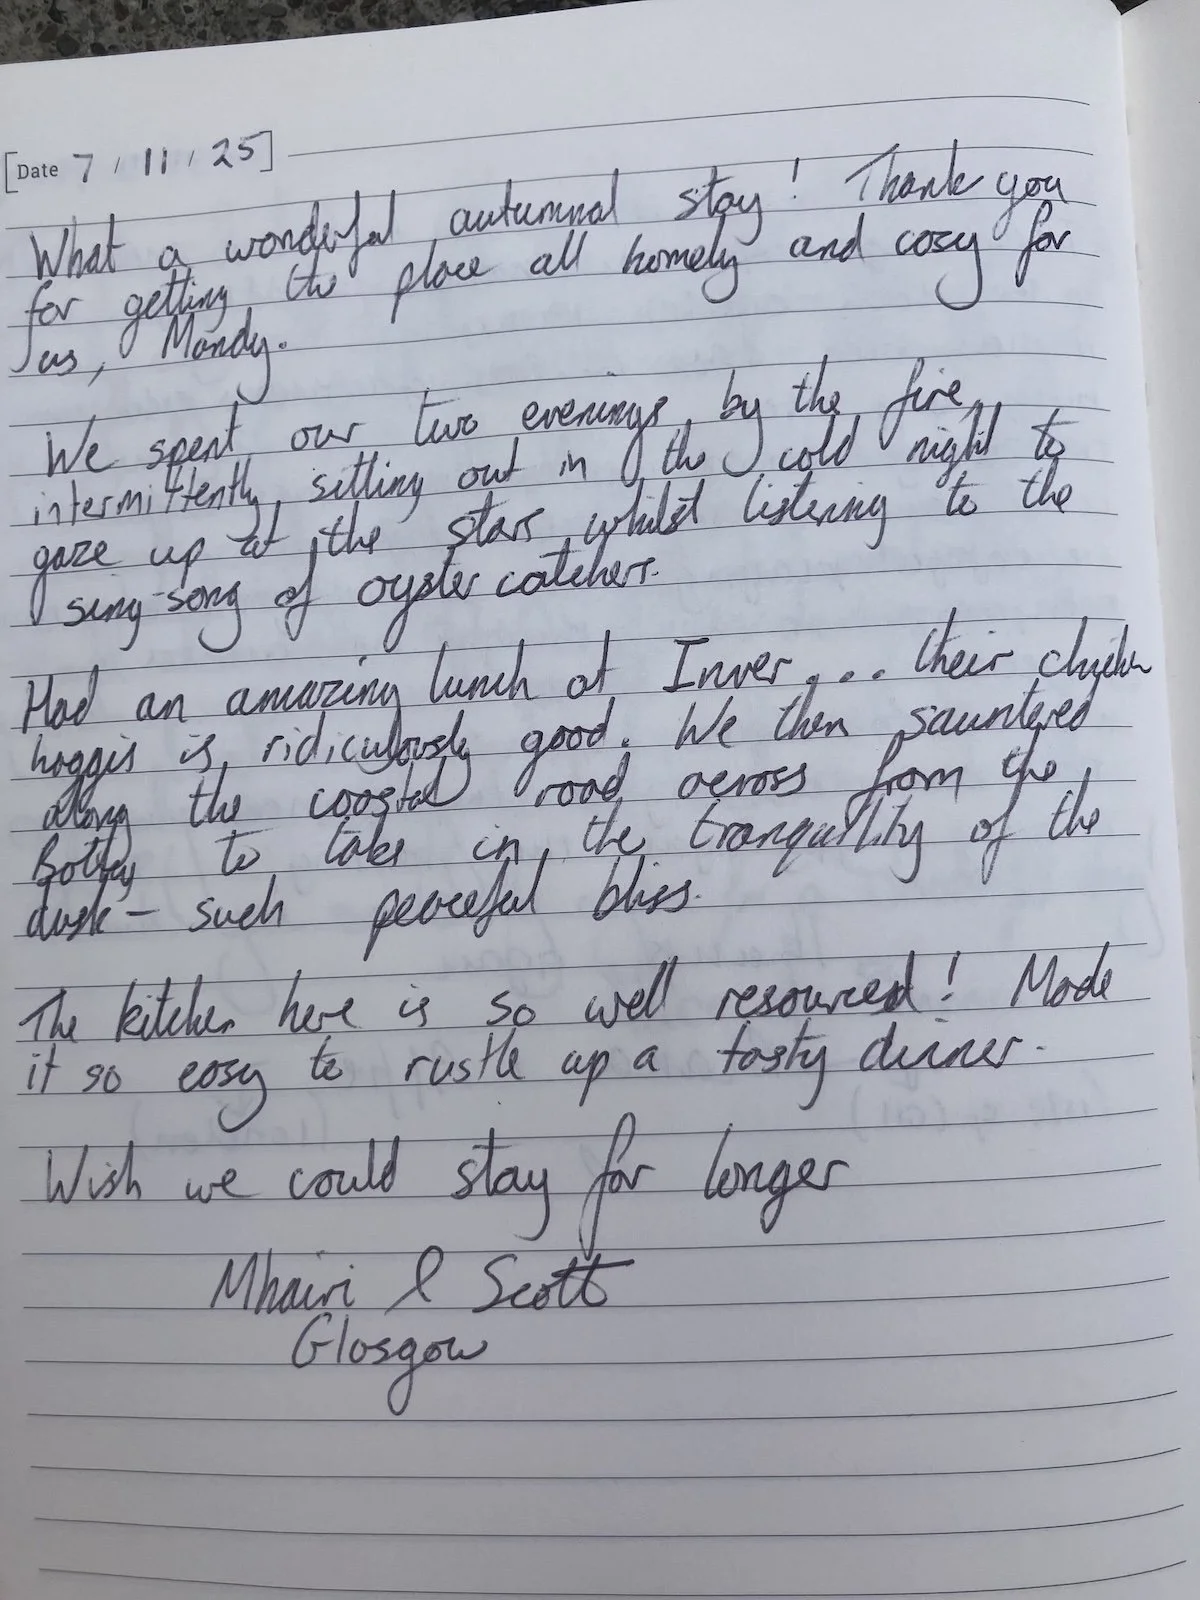 [Date 7 / 11 / 25]
What a wonderful autumnal stay! Thank you
for getting the place all homely and cosy for
us, Mandy.
We spent our two evenings by the fire,
intermittently sitting out in the cold night to
gaze up at the stars whilst listening to the
sing-song of oyster catchers.
Had an amazing lunch at Inver... their chicken
haggis is ridiculously good. We then sauntered
along the coastal road across from the
Bothy to take in the tranquility of the
dusk - such peaceful bliss.
The kitchen here is so well resourced! Made
it so easy to rustle up a tasty dinner.
Wish we could stay for longer
Mhairi & Scott
Glasgow